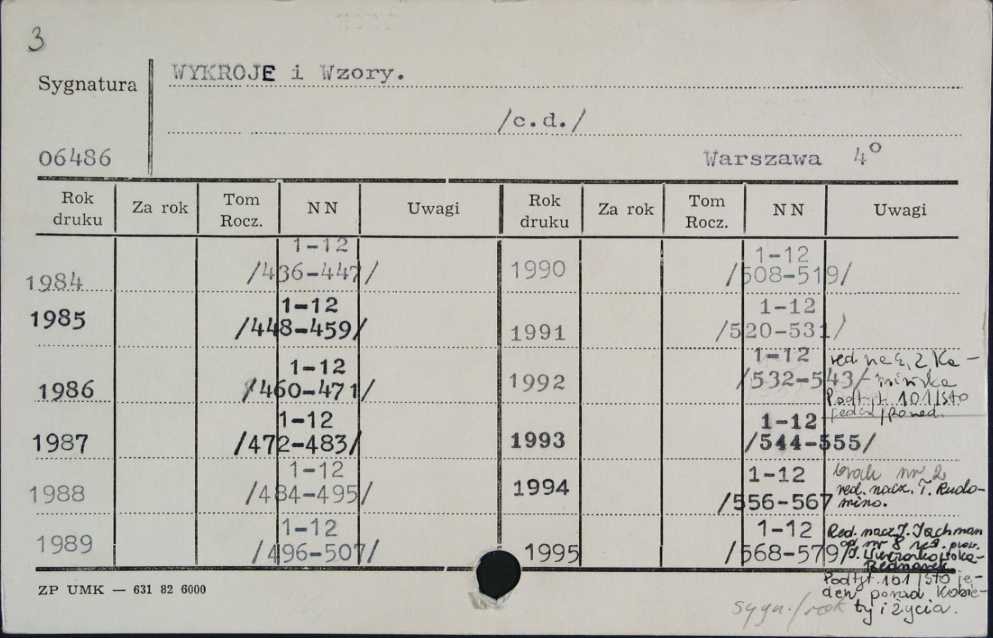 3
Sygnatura
WYKROJE i Wzory.
/c.d./
06486
Warszawa 4º
Rok druku Za rok Tom Rocz. NN Uwagi Rok druku Za rok Tom Rocz. NN Uwagi
1984 1-12 /436-447/
1985 1-12 /448-459/
1986 1-12 /460-471/
1987 1-12 /472-483/
1988 1-12 /484-495/
1989 1-12 /496-507/
1990 1-12 /508-519/
1991 1-12 /520-531/
1992 1-12 /532-543/ red.
Podtyt. 101/sto
1993 1-12 /544-555/
1994 1-12 /556-567 brak nr 2
red. nacz. T. Rudo-
mino.
1995 1-12 /568-579/ Red. nacz. J. Jachman
od nr 8 red.
Bednarek
Podtyt. 101/sto je-
den ponad Kobie-
ty i życia.
ZP UMK — 631 82 6000
sygn./rok